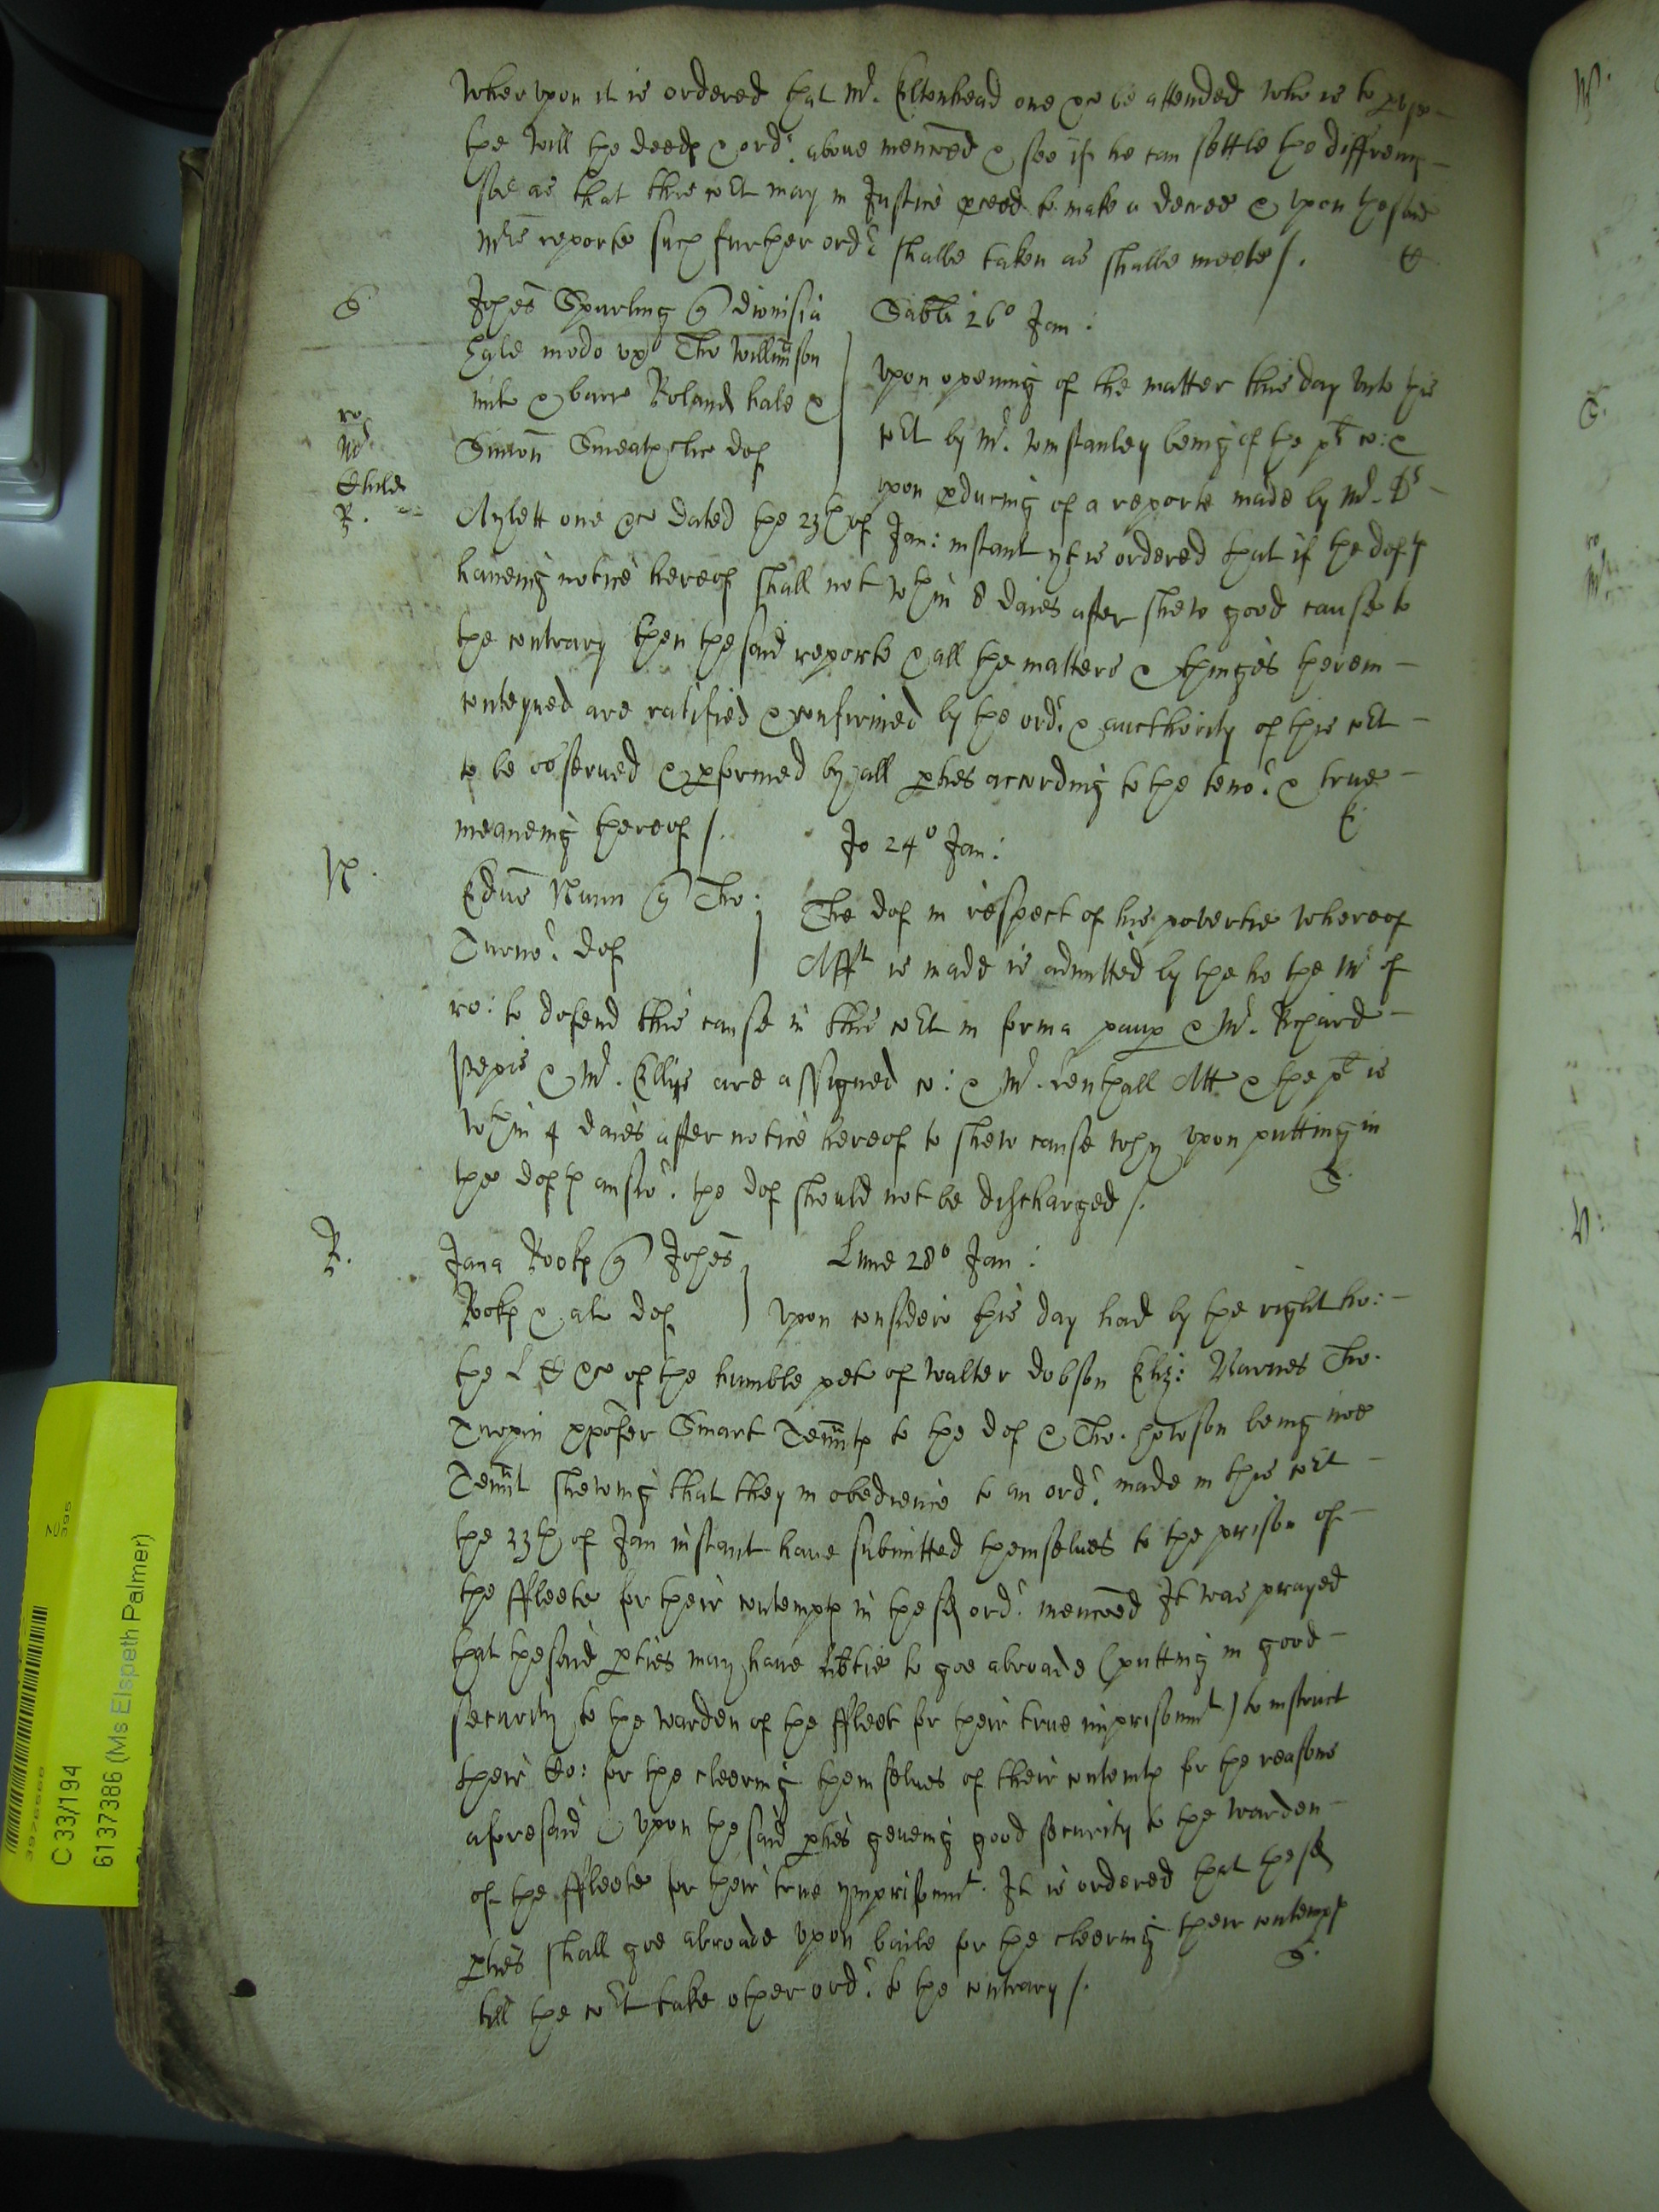 Wherupon it is ordered that Mr. Eltonhead one &c be attended who is to pvse
the Will the deeds & ordr. above mencoed & see if he can settle the differenc
soe as that this cort may in Justice pceed to make a decree & upon the said
Mrs reporte such further ordr shalbe taken as shalbe meete /.
S
Johes Sparling Dionisia
Hale modo ux Tho Willimson
milt & barr Roland hale &
Simon def
Sabti 26o Jan:
Upon opening of the matter this day unto this
cort by Mr. Winstanley being of the plt co: &
upon pducing of a reporte made by Mr. Dr
ro
Mr.
Childe
R.
Aylett one &c dated the 23th of Jan: instant yt is ordered that if the defts
haveing notice hereof shall not wthin 8 daies after shew good cause to
the contrary then the said reporte & all the matters & thinges therein
conteyned are ratified & confirmed by the ordr. & aucthority of this cort
to be observed & pformed by all pties according to the tenor. & true
meaneing thereof /.
Jo 24o Jan:
N.
Edus Nunn Tho:
Turnor. def
The def in respect of his povertie whereof
Afft is made is admitted by the ho the Mr of
ro: to defend this cause in this cort in forma paup & Mr. Richard
Pepis & Mr. Ellys are assigned co: & Mr. Att & the plt is
wthin 4 daies after notice hereof to shew cause why upon putting in
the defts answr. the def should not be discharged /.
S.
R.
Jana Rooke Johes
Rooke & al def
Lune 28o Jan:
Upon consideic this day had by the right ho:
the L C &c of the humble pet of Walter Dobson Eliz: Barnes Tho.
Turpin xpofer Smart Tennts to the def & Tho. being noe
Tennt shewing that they in obedience to an ordr. made in this cort
the 23th of Jan instant have submitted themselves to the prison of
the ffleete for their contempts in the sd ordr. mencoed It was prayed
that the said pties may have libtie to goe abroade (putting in good
security to the warden of the ffleet for their true imprisonmt) to instruct
their Co: for the cleering themselves of their contemts for the reasons
aforesaid & upon the said pties geveing good security to the warden
of the ffleete for their true ymprisonmt. It is ordered that the sd
pties shall goe abroade upon baile for the cleering their contempts
till the cort take other ordr. to the contrary /.
S.
C 33/194
6137386 (Ms Elspeth Palmer)